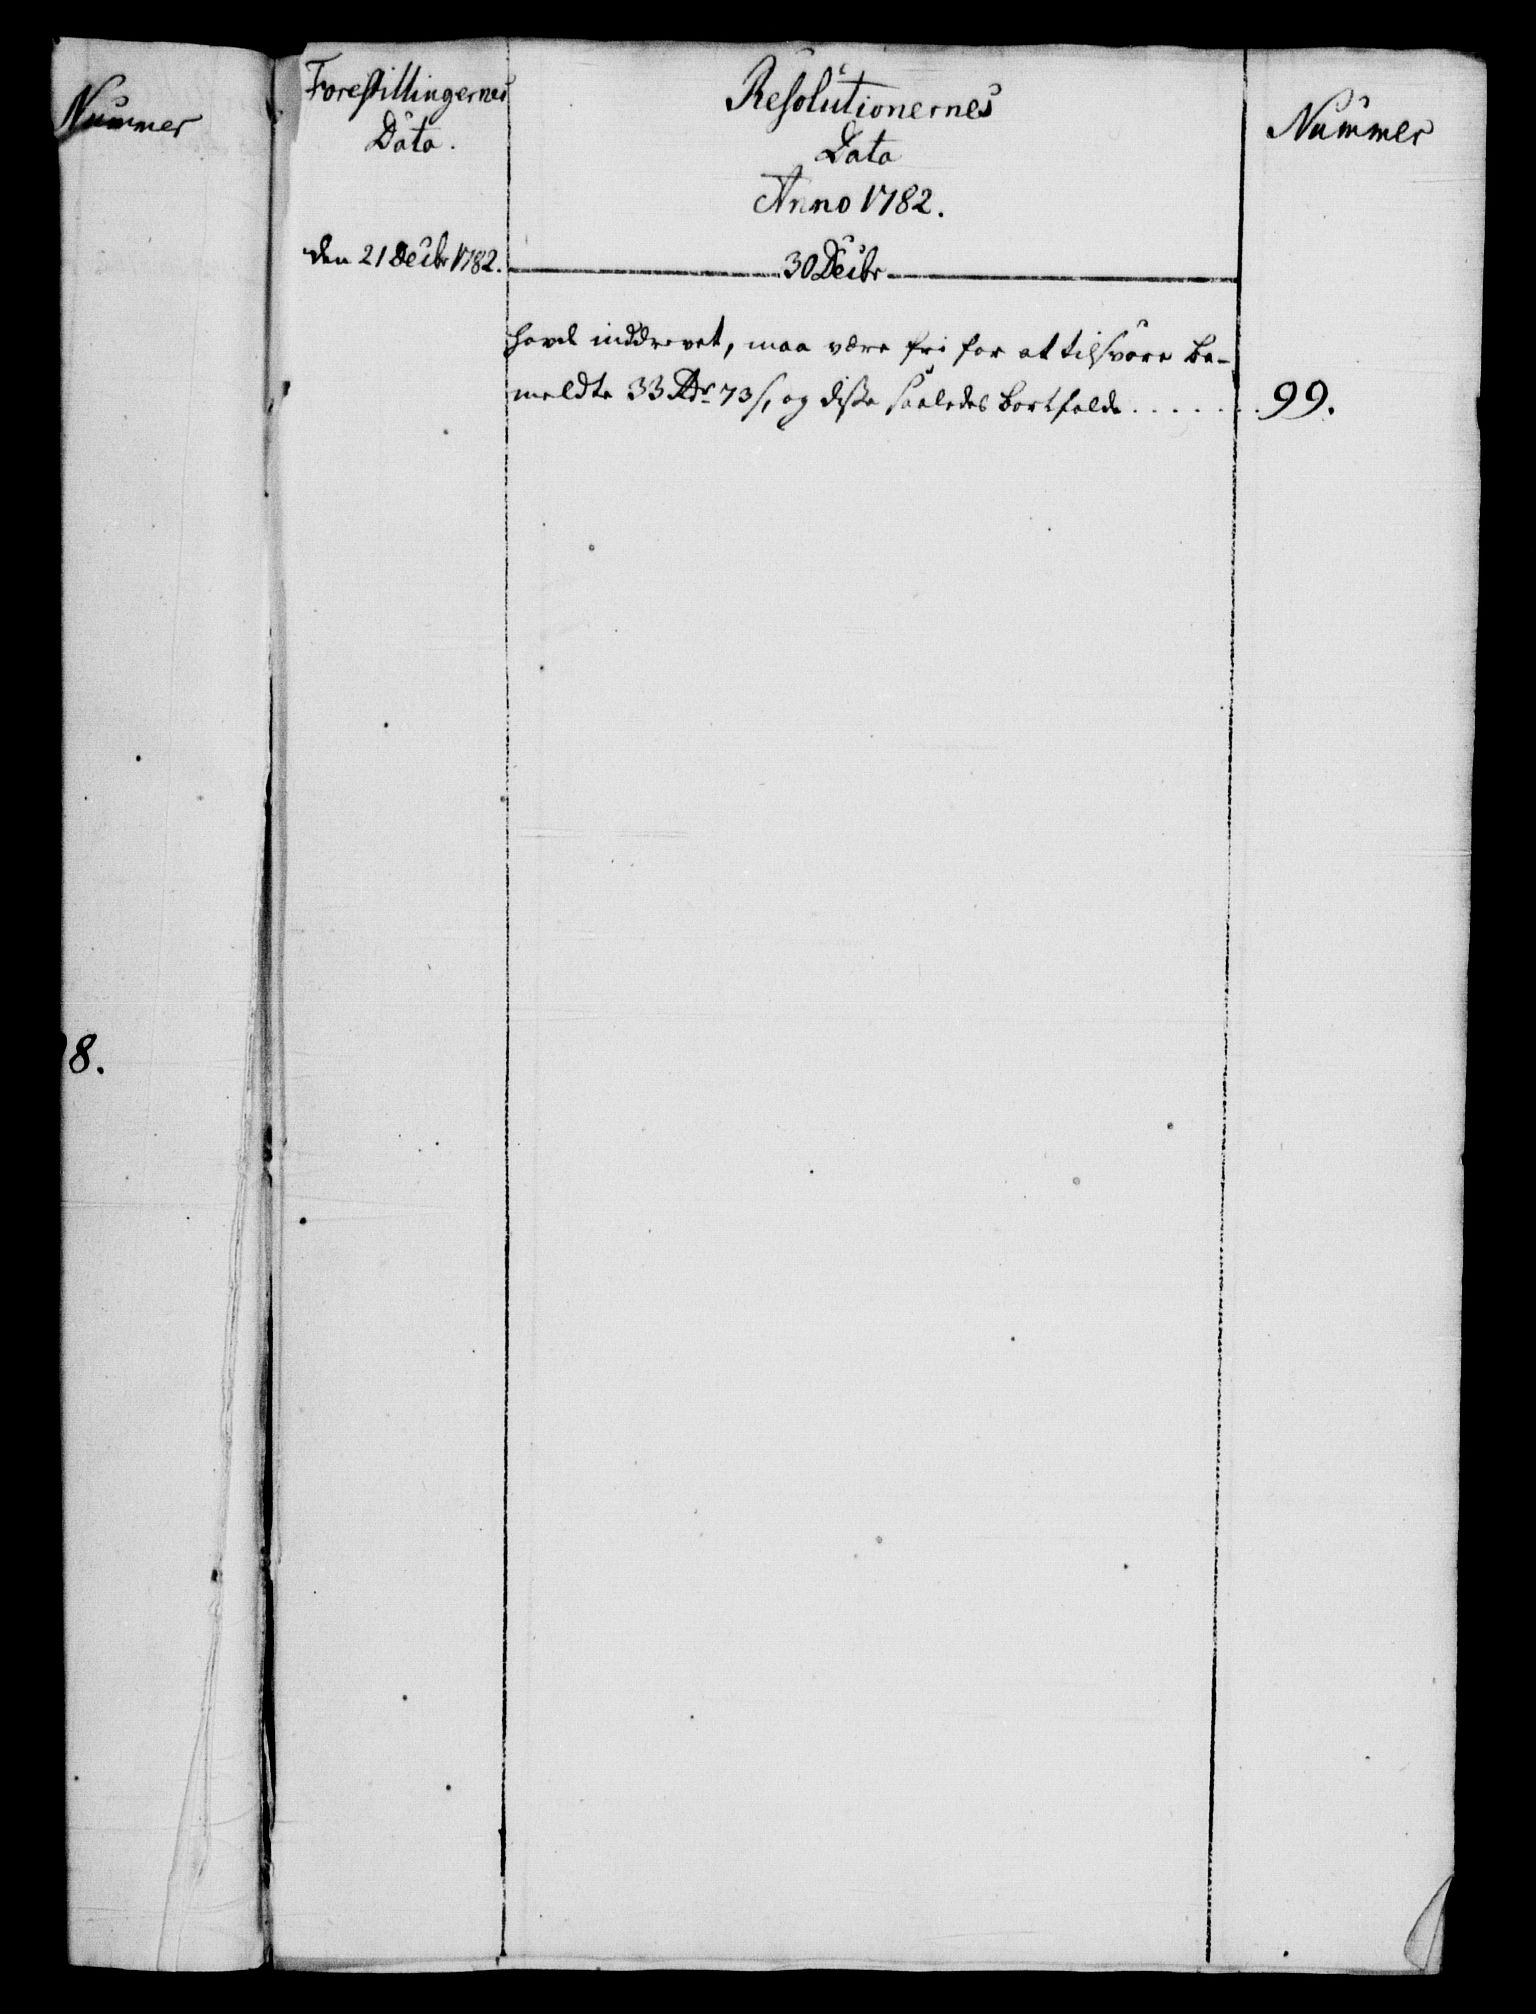 Nummer
98.
Forestillingernes
Data.
Resolutionernes
Data
Anno 1782.
Nummer
den 21 Decibr 1782.
30 Decibr
havde inddrevet, maa være fri for at tilsvare be-
meldte 33 Rdr 73 s, og disse saaledes bortfalde . . . . . . . 99.